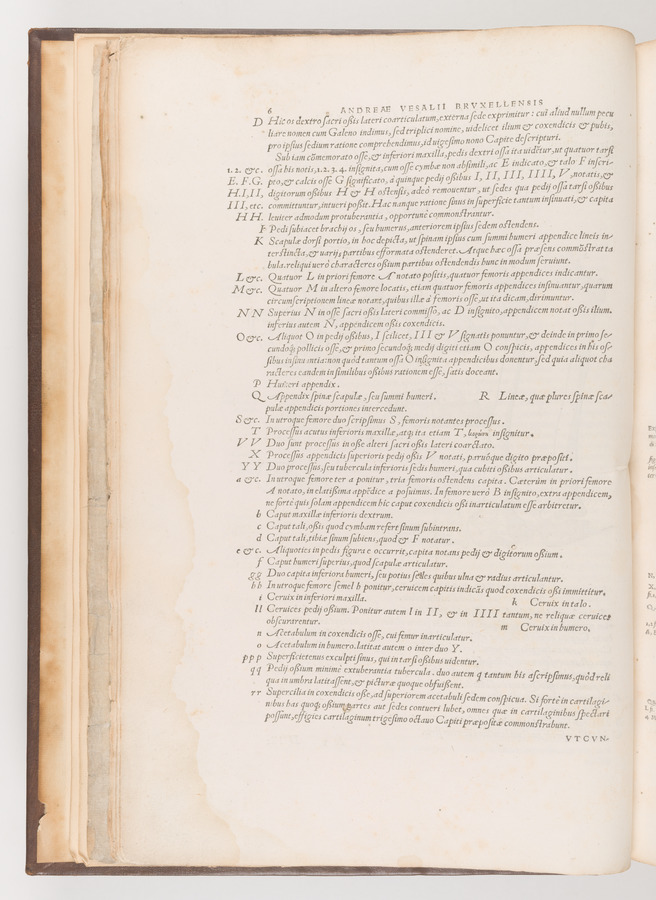 6 ANDREAE VESALII BRVXELLENSIS
D Hic os dextro ſacri oßis lateri coarticulatum, externa ſede exprimitur: cui aliud nullum pecu
liare nomen cum Galeno indimus, ſed triplici nomine, uidelicet ilium & coxendicis & pubis,
pro ipſius ſedium ratione comprehendimus, id uigeſimo nono Capite deſcripturi.
Sub iam cōmemorato oſſe, & inferiori maxilla, pedis dextri oſſa ita uidētur, ut quatuor tarſi
1. 2. &c. oſſa his notis, 1.2.3.4. inſignita, cum oſſe cymbæ non abſimili, ac E indicato, & talo F inſcri-
E. F. G. pto, & calcis oſſe G ſignificato, à quinque pedij oßibus I, II, III, IIII, V, notatis, &
H. I, II, digitorum oßibus H & H oſtenſis, adeò remouentur, ut ſedes qua pedij oſſa tarſi oßibus
III, etc. committuntur, intueri poßit. Hac nanque ratione ſinus in ſuperficie tantum inſinuati, & capita
H H. leuiter admodum protuberantia, opportunè commonſtrantur.
I Pedi ſubiacet brachij os, ſeu humerus, anteriorem ipſius ſedem oſtendens.
K Scapulæ dorſi portio, in hoc depicta, ut ſpinam ipſius cum ſummi humeri appendice lineis in-
terſtincta, & uarijs partibus efformata oſtenderet. Atque hæc oſſa præſens commōſtrat ta
bula. reliqui uerò characteres oßium partibus oſtendendis hunc in modum ſeruiunt.
L &c. Quatuor L in priori femore A notato poſitis, quatuor femoris appendices indicantur.
M &c. Quatuor M in altero femore locatis, etiam quatuor femoris appendices inſinuantur, quarum
circumſcriptionem lineæ notant, quibus illæ à femoris oſſe, ut ita dicam, dirimuntur.
N N Superius N in oſſe ſacri oßis lateri commiſſo, ac D inſignito, appendicem notat oßis ilium.
inferius autem N, appendicem oßis coxendicis.
O &c. Aliquot O in pedij oßibus, I ſcilicet, III & V ſignatis ponuntur, & deinde in primo ſe-
cundoq́; pollicis oſſe, & primo ſecundoq́; medij digiti etiam O conſpicis, appendices in his oſ-
ſibus inſinuantia: non quòd tantum oſſa O inſignita appendicibus donentur, ſed quia aliquot cha
racteres eandem in ſimilibus oßibus rationem eſſe, ſatis doceant.
P Humeri appendix.
Q Appendix ſpinæ ſcapulæ, ſeu ſummi humeri. R Lineæ, quæ plures ſpinæ ſca-
pulæ appendicis portiones intercedunt.
S &c. In utroque femore duo ſcripſimus S, femoris notantes proceſſus.
T Proceſſus acutus inferioris maxillæ, atq; ita etiam T, inſignitur.
V V Duo ſunt proceſſus in oße alteri ſacri oßis lateri coarctato.
X Proceſſus appendicis ſuperioris pedij oßis V notati, paruóque digito præpoſiti.
Y Y Duo proceſſus, ſeu tubercula inferioris ſedis humeri, qua cubiti oßibus articulatur.
a &c. In utroque femore ter a ponitur, tria femoris oſtendens capita. Cæterùm in priori femore
A notato, in elatißima appēdice a poſuimus. In femore uerò B inſignito, extra appendicem,
ne fortè quis ſolam appendicem hic caput coxendicis oßi inarticulatum eſſe arbitretur.
b Caput maxillæ inferioris dextrum.
c Caput tali, oßis quod cymbam refert ſinum ſubintrans.
d Caput tali, tibiæ ſinum ſubiens, quod & F notatur.
e &c. Aliquoties in pedis figura e occurrit, capita notans pedij & digitorum oßium.
f Caput humeri ſuperius, quod ſcapulæ articulatur.
gg Duo capita inferiora humeri, ſeu potius ſedes quibus ulna & radius articulantur.
hh In utroque femore ſemel h ponitur, ceruicem capitis indicās quod coxendicis oßi immittitur.
i Ceruix in inferiori maxilla. k Ceruix in talo.
ll Ceruices pedij oßium. Ponitur autem l in II, & in IIII tantum, ne reliquæ ceruices
obſcurarentur. m Ceruix in humero.
n Acetabulum in coxendicis oſſe, cui femur inarticulatur.
o Acetabulum in humero. latitat autem o inter duo Y.
ppp Superficietenus exculpti ſinus, qui in tarſi oßibus uidentur.
qq Pedij oßium minimè extuberantia tubercula. duo autem q tantum his aſcripſimus, quòd reli
qua in umbra latitaſſent, & picturæ quoque obfuißent.
rr Supercilia in coxendicis oße, ad ſuperiorem acetabuli ſedem conſpicua. Si fortè in cartilagi-
nibus has quoq; oßium partes aut ſedes contueri lubet, omnes quæ in cartilaginibus ſpectari
poſſunt, effigies cartilaginum trigeſimo octauo Capiti præpoſitæ commonſtrabunt.
VTCVN-